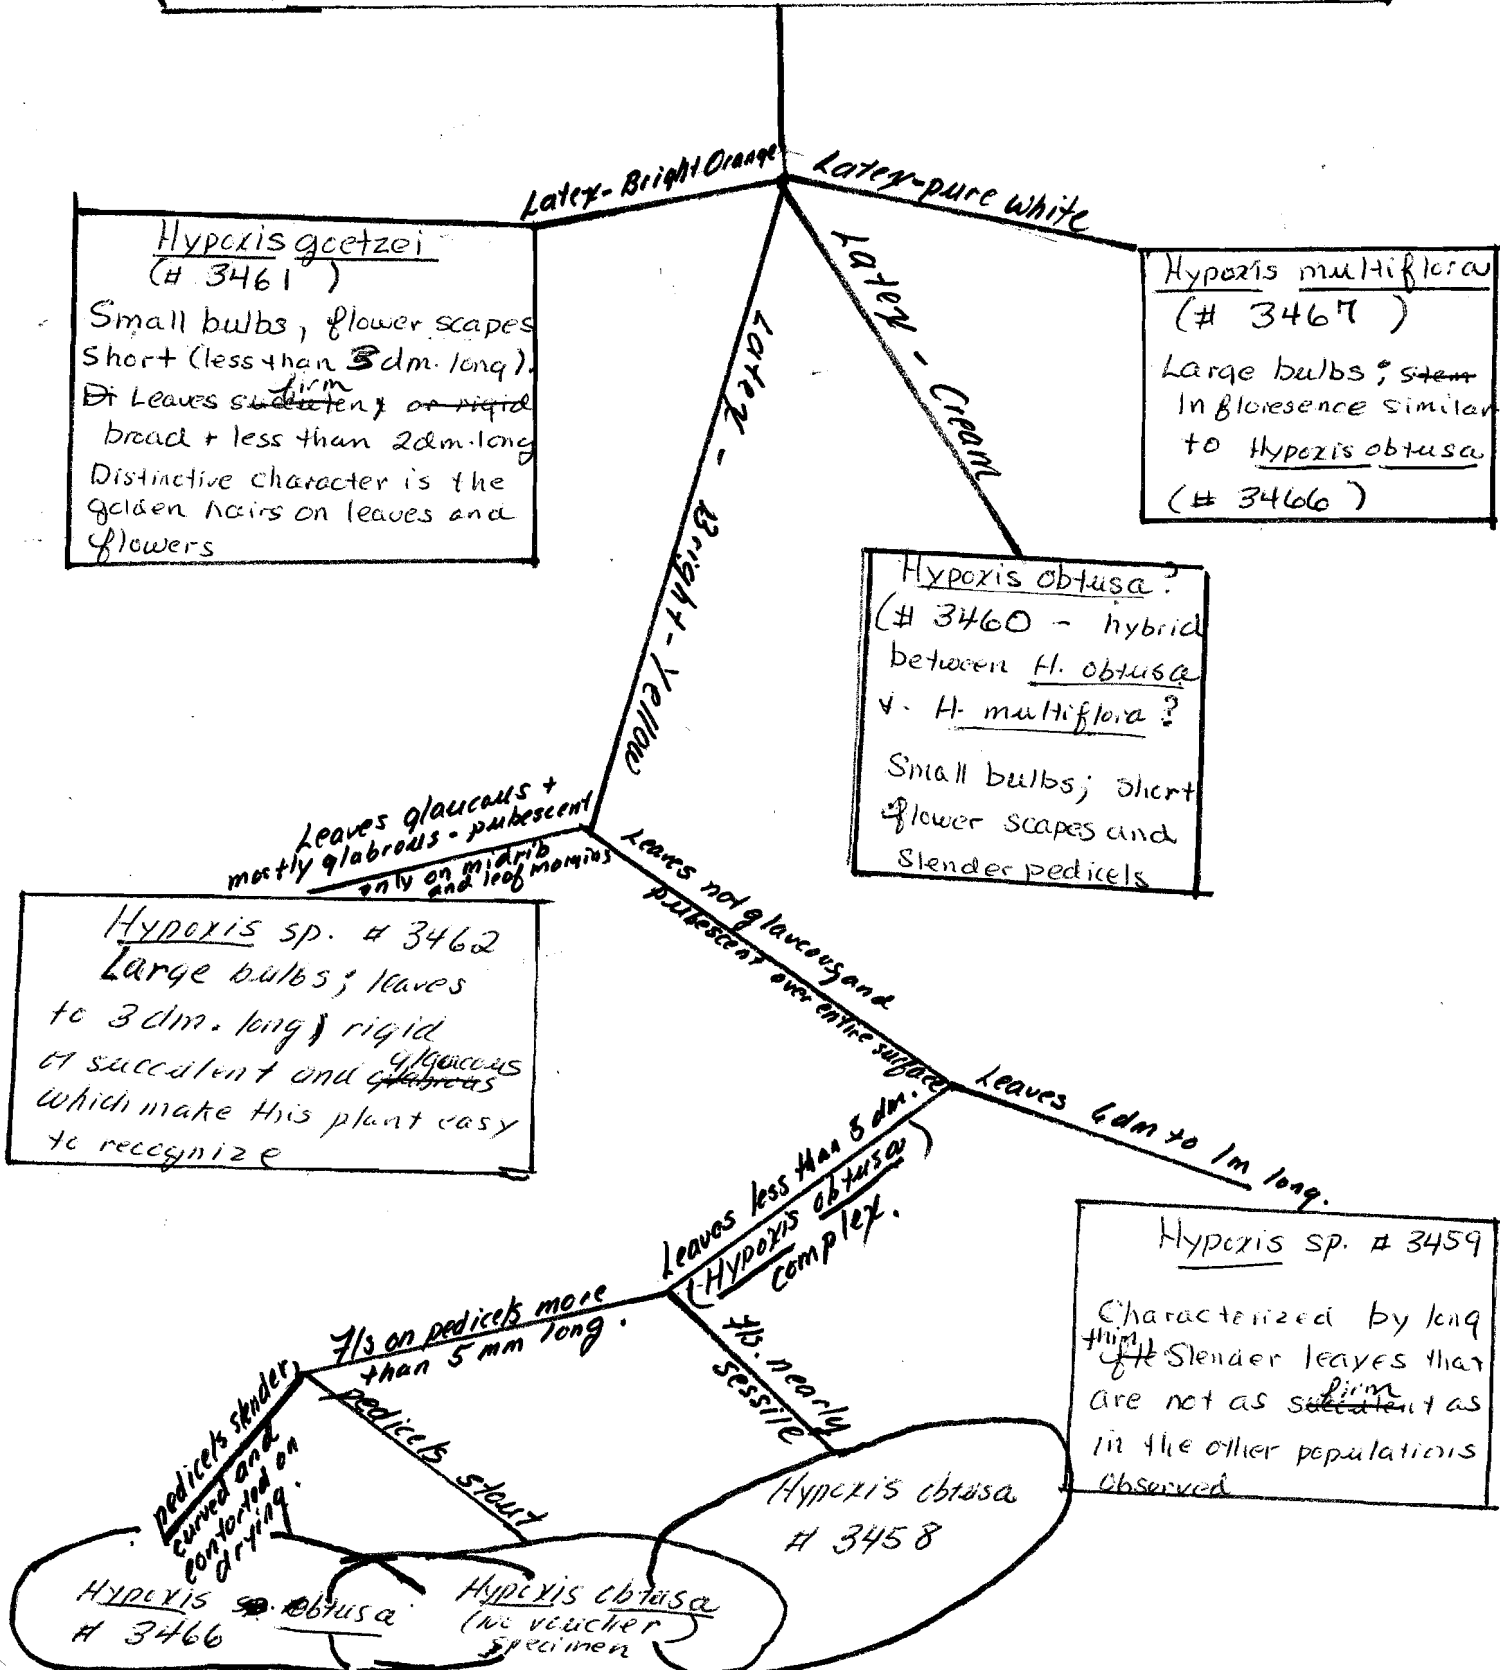 Latex-Bright Orange
Latex-pure white
Latex - Cream
Latex - Bright-Yellow
Hypoxis goetzei
(# 3461 )
Small bulbs, flower scapes
Short (less than 3 dm. long).
Leaves firm
broad + less than 2dm. long
Distinctive character is the
golden hairs on leaves and
flowers
Hypoxis multiflora
(# 3467 )
Large bulbs; stem
Infloresence similar
to Hypoxis obtusa
(# 3466 )
Hypoxis obtusa?
(# 3460 - hybrid
between H. obtusa
v. H. multiflora ?
Small bulbs; short
flower scapes and
Slender pedicels
Leaves glaucous +
mostly glabrous - pubescent
only on midrib
and leaf margins
Leaves not glaucous and
pubescent over entire surface
Hypoxis sp. # 3462
Large bulbs; leaves
to 3 dm. long, rigid
or succulent and glabrous glaucous
which make this plant easy
to recognize
Leaves less than 3 dm.
(Hypoxis obtusa)
complex.
Leaves 6dm to 1m long.
Hypoxis sp. # 3459
Characterized by long
thin Slender leaves that
are not as firm as
in the other populations
observed
7/s on pedicels more
than 5 mm long.
7/s. nearly
sessile
pedicels slender,
curved and
contorted on
drying.
pedicels stout
Hypoxis obtusa
# 3458
Hypoxis sp. obtusa
# 3466
Hypoxis obtusa
(No voucher
specimen